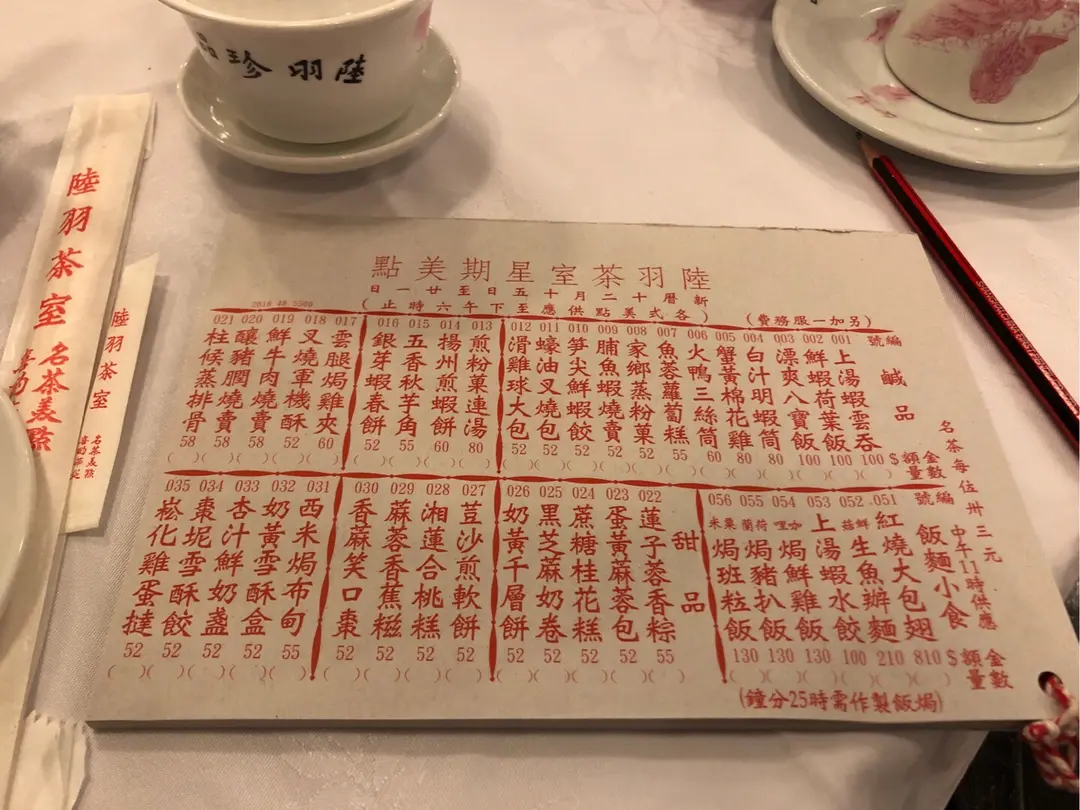 陸羽珍品
陸羽茶室
名茶美點
陸羽茶室
名茶美點
陸羽茶室星期美點
新曆十二月十五日至廿一日
(各式美點供應至下午六時止)
(另加一服務費)
2018 48 5500
編號
鹹品
金額$
數量
001 上湯蝦雲吞 100
002 鮮蝦荷葉飯 100
003 漂爽八寶飯 100
004 白汁明蝦筒 80
005 蟹黃棉花雞 80
006 火鴨三絲筒 60
007 魚蓉蘿蔔糕 55
008 家鄉蒸粉菓 52
009 脯魚蝦燒賣 52
010 笋尖鮮蝦餃 52
011 蠔油叉燒包 52
012 滑雞球大包 52
013 煎粉菓連湯 80
014 揚州煎蝦餅 60
015 五香秋芋角 55
016 銀芽蝦春餅 52
017 雲腿焗雞夾 60
018 叉燒軍機酥 52
019 鮮牛肉燒賣 58
020 釀豬膶燒賣 58
021 柱候蒸排骨 58
甜品
022 蓮子蓉香粽 55
023 蛋黃蔴蓉包 52
024 蔗糖桂花糕 52
025 黑芝蔴奶卷 52
026 奶黃千層餅 52
027 荳沙煎軟餅 52
028 湘蓮合桃糕 52
029 蔴蓉香蕉糍 52
030 香蔴笑口棗 52
031 西米焗布甸 55
032 奶黃雪酥盒 52
033 杏汁鮮奶盞 52
034 棗坭雪酥餃 52
035 崧化雞蛋撻 52
名茶每位卅三元
中午11時供應
飯麵小食
編號
金額$
數量
051 紅燒大包翅 810
052 鮮菇生魚辦麵 210
053 上湯蝦水餃 100
054 咖喱焗鮮雞飯 130
055 荷蘭焗豬扒飯 130
056 粟米焗班粒飯 130
(焗飯製作需時25分鐘)